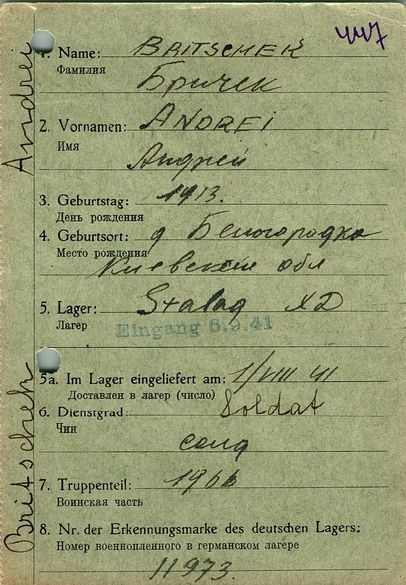 447
1. Name: BRITSCHEK
Фамилия
Бричек
2. Vornamen: ANDREI
Имя
Андрей
3. Geburtstag: 1913.
День рождения
4. Geburtsort: д Белогородка
Место рождения
Киевский обл
5. Lager: Stalag XD
Лагер
Eingang 6.9.41
5a. Im Lager eingeliefert am: 1/VIII 41
Доставлен в лагер (число)
6. Dienstgrad: Soldat
Чин
солд
7. Truppenteil: 196b
Воинская часть
8. Nr. der Erkennungsmarke des deutschen Lagers:
Номер военнопленного в германском лагере
11973
Britschek Andrei